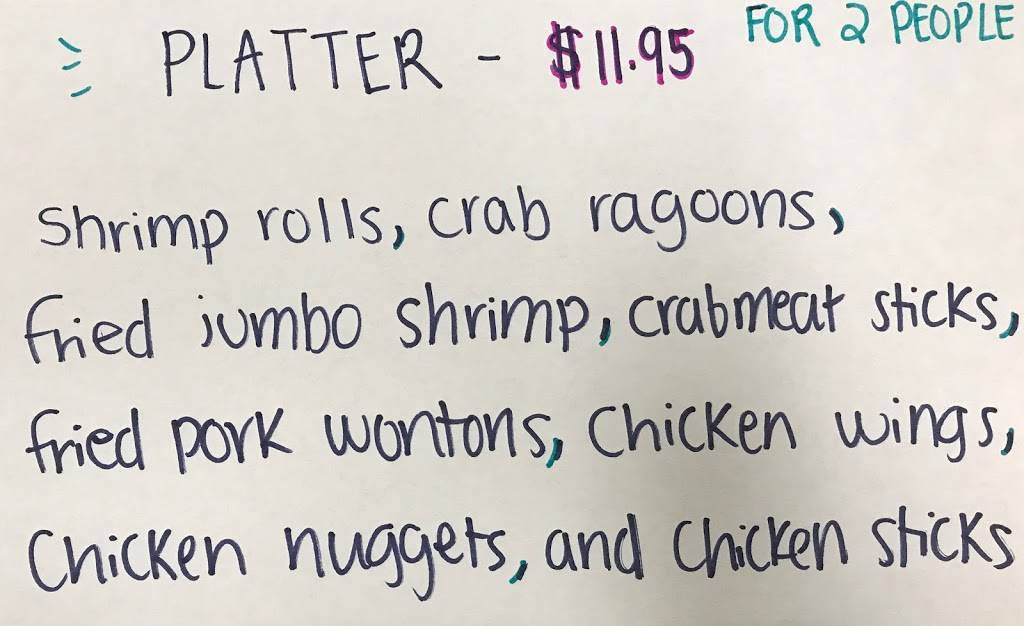 PLATTER - $11.95 FOR 2 PEOPLE
shrimp rolls, crab ragoons,
fried jumbo shrimp, crabmeat sticks,
fried pork wontons, chicken wings,
chicken nuggets, and chicken sticks